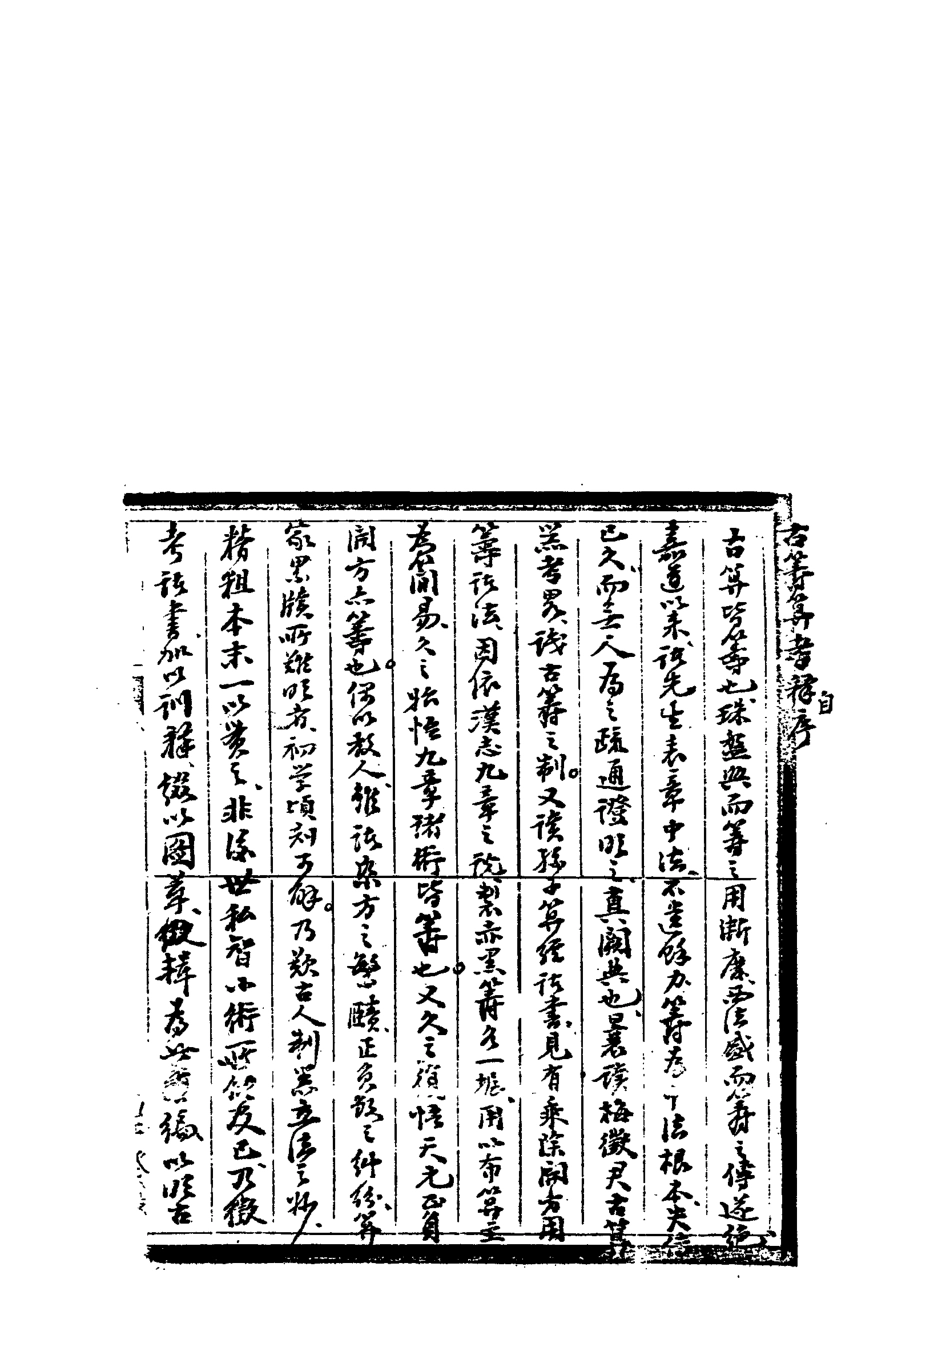 古籌算考釋序
自
古算皆籌也珠盤興而籌之用漸廢西法盛而籌之傳遂絕
嘉道以來諸先生表章中法不遺餘力籌為中法根本失傳
已久而無人為之疏通證明之真闕典也曩讀梅徵君古算
器考畧識古籌之制又讀孫子算經諸書見有乘除開方用
籌諸法因依漢志九章之說製赤黑籌各一握用以布算至
為簡易久之始悟九章諸術皆籌也又久之復悟天元正負
開方亦籌也偶以教人雖諸乘方之繁賾正負雜之糾紛算
家累牘所難明者初學頃刻可解乃歎古人制器立法之妙
精粗本末一以貫之非後世私智小術所能及已乃徵
考諸書加以訓釋綴以圖草為此編以明古